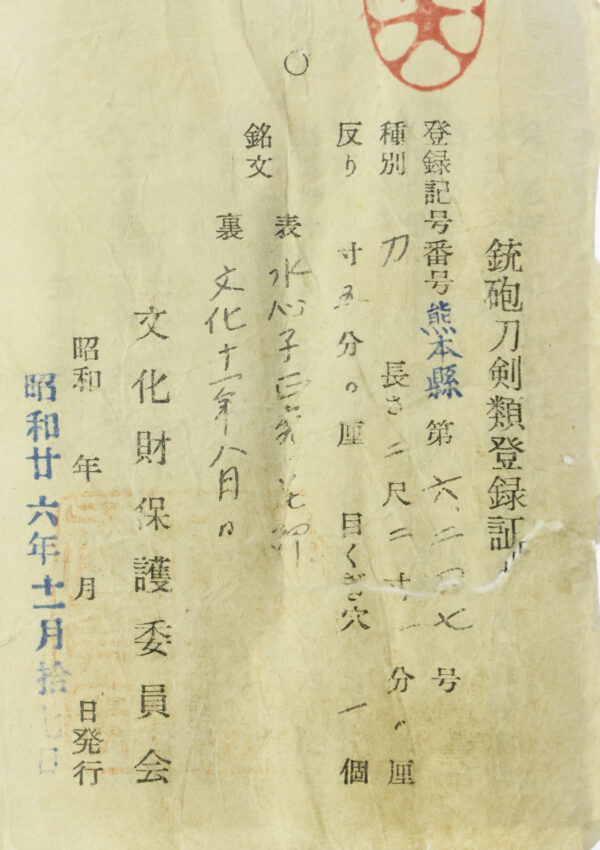 銃砲刀剣類登録証
登録記号番号 熊本縣 第 六二〇七 号
種別 刀 長さ 二尺二寸一分〇厘
反り 寸五分〇厘 目くぎ穴 一個
銘文 表 水心子正秀
裏 文化十一年八月日
文化財保護委員会
昭和 年 月 日発行
昭和廿六年十一月拾七日